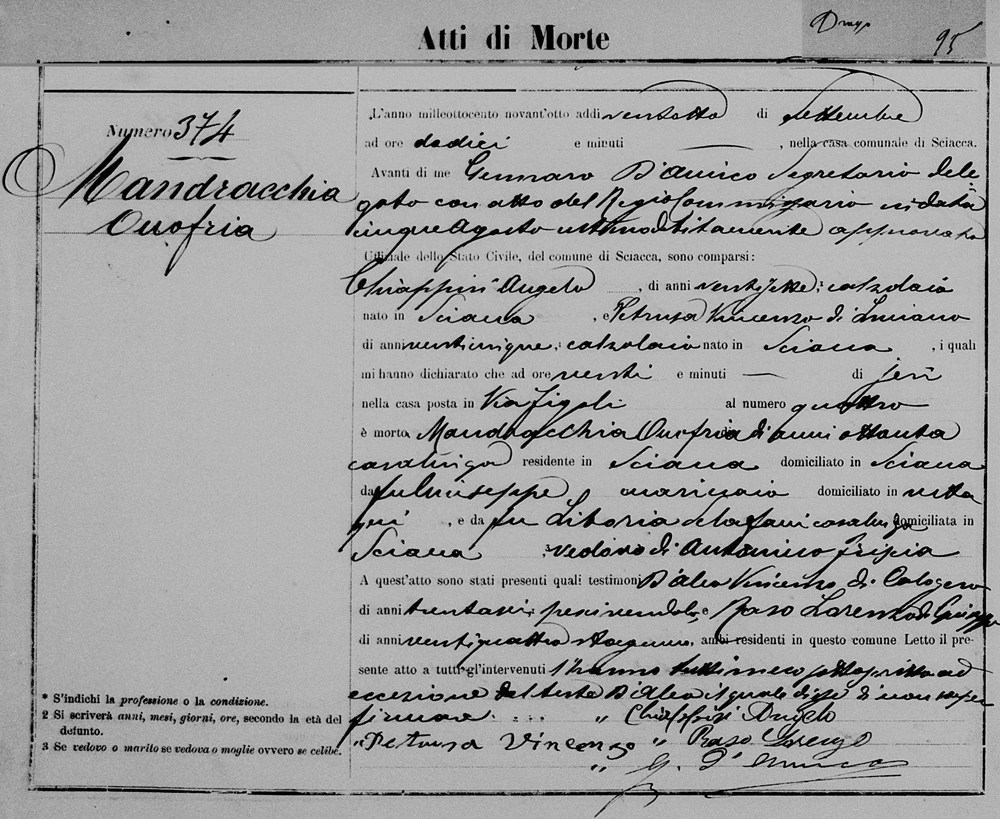 Atti di Morte
95
Numero 374
Mandracchia
Onofria
L'anno milleottocento novant'otto addi ventotto di Settembre
ad ore dodici e minuti — , nella casa comunale di Sciacca.
Avanti di me Gennaro D'Amico Segretario dele
gato con atto del Regio Commissario in data
cinque Agosto ultimo debitamente approvato
Uffiziale dello Stato Civile, del comune di Sciacca, sono comparsi:
Chiappisi Angelo , di anni ventisette, calzolaio
nato in Sciacca , e Petrusa Vincenzo di Luciano
di anni venticinque, calzolaio nato in Sciacca , i quali
mi hanno dichiarato che ad ore venti e minuti — di jeri
nella casa posta in Via Figoli al numero quattro
è morta Mandracchia Onofria di anni ottanta
casalinga residente in Sciacca domiciliato in Sciacca
da fu Giuseppe , marinaio domiciliato in vita
qui , e da fu Litoria casalinga domiciliata in
Sciacca vedova di Antonino
A quest'atto sono stati presenti quali testimoni D'Aleo Vincenzo di Calogero
di anni pescivendolo, e Raso Lorenzo di Giuseppe
di anni ventiquattro stagnino, ambi residenti in questo comune Letto il pre-
sente atto a tutti gl'intervenuti l'hanno tutti meco sottoscritto ad
eccezione del teste D'Aleo il quale disse di non saper
firmare. „ Chiappisi Angelo
„ Petrusa Vincenzo „ Raso Lorenzo
„ G. D'Amico
* S'indichi la professione o la condizione.
2 Si scriverà anni, mesi, giorni, ore, secondo la età del
defunto.
3 Se vedovo o marito se vedova o moglie ovvero se celibe.